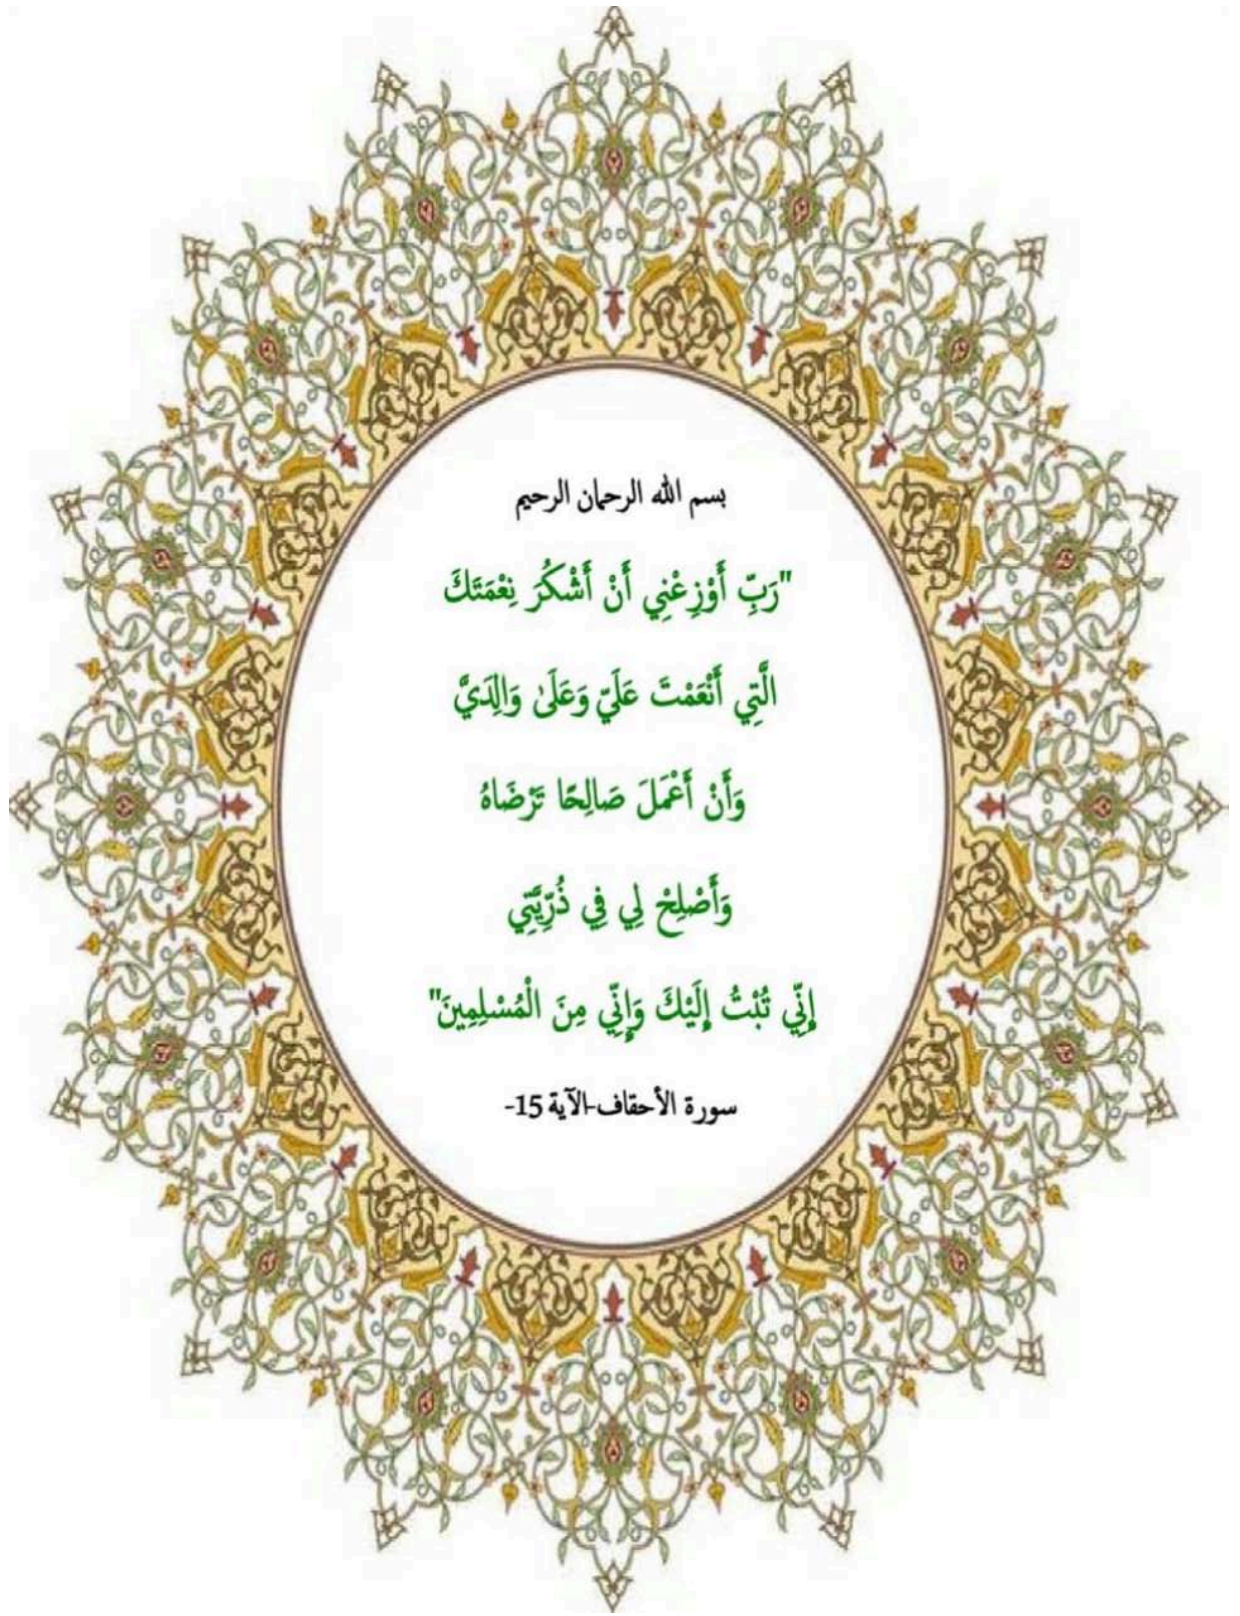 بسم الله الرحمان الرحيم
"رَبِّ أَوْزِعْنِي أَنْ أَشْكُرَ نِعْمَتَكَ
الَّتِي أَنْعَمْتَ عَلَيَّ وَعَلَىٰ وَالِدَيَّ
وَأَنْ أَعْمَلَ صَالِحًا تَرْضَاهُ
وَأَصْلِحْ لِي فِي ذُرِّيَّتِي
إِنِّي تُبْتُ إِلَيْكَ وَإِنِّي مِنَ الْمُسْلِمِينَ"
سورة الأحقاف-الآية 15-